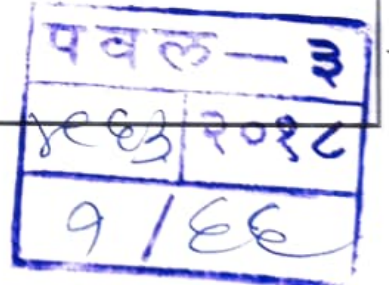 पवल — ३
४९६३ २०१८
१ / ६६